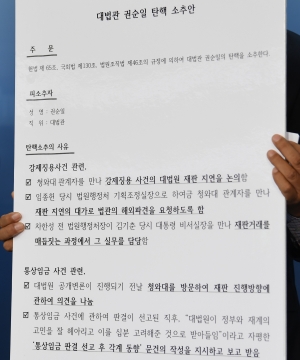 대법관 권순일 탄핵 소추안
주 문
헌법 제 65조, 국회법 제130조, 법원조직법 제46조의 규정에 의하여 대법관 권순일의 탄핵을 소추한다.
피소추자
성 명 : 권순일
직 위 : 대법관
탄핵소추의 사유
강제징용사건 관련,
☑ 청와대 관계자를 만나 강제징용 사건의 대법원 재판 지연을 논의함
☑ 임종헌 당시 법원행정처 기획조정실장으로 하여금 청와대 관계자를 만나
재판 지연의 대가로 법관의 해외파견을 요청하도록 함
☑ 차한성 전 법원행정처장이 김기춘 당시 대통령 비서실장을 만나 재판거래를
매듭짓는 과정에서 그 실무를 담당함
통상임금 사건 관련,
☑ 대법원 공개변론이 진행되기 전날 청와대를 방문하여 재판 진행방향에
관하여 의견을 나눔
☑ 통상임금 사건에 관하여 판결이 선고된 직후, "대법원이 정부와 재계의
고민을 잘 헤아리고 이를 십분 고려해준 것으로 받아들임"이라고 자평한
'통상임금 판결 선고 후 각계 동향' 문건의 작성을 지시하고 보고 받음